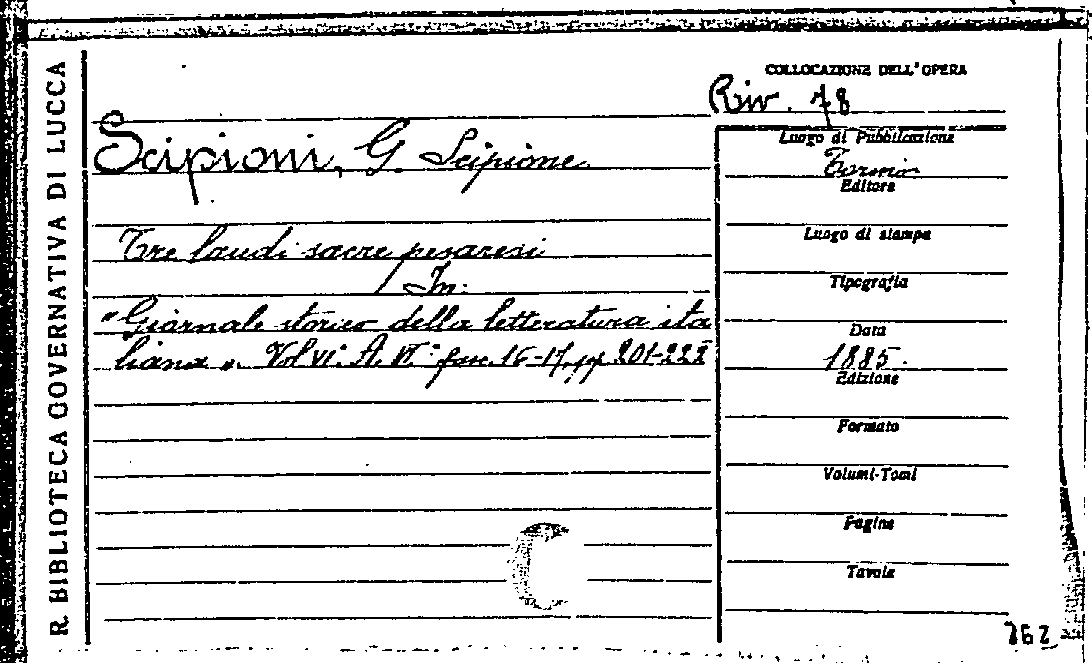 R. BIBLIOTECA GOVERNATIVA DI LUCCA
COLLOCAZIONE DELL'OPERA
Riv. 78
Scipioni, G. Scipione
Tre laudi sacre pesaresi
In:
"Giornale storico della letteratura ita
liana". Vol VI. A. III: fasc. 16-17, pp 201-222
Luogo di Pubblicazione
Torino
Editore
Luogo di stampa
Tipografia
Data
1885.
Edizione
Formato
Volumi-Tomi
Pagine
Tavole
262